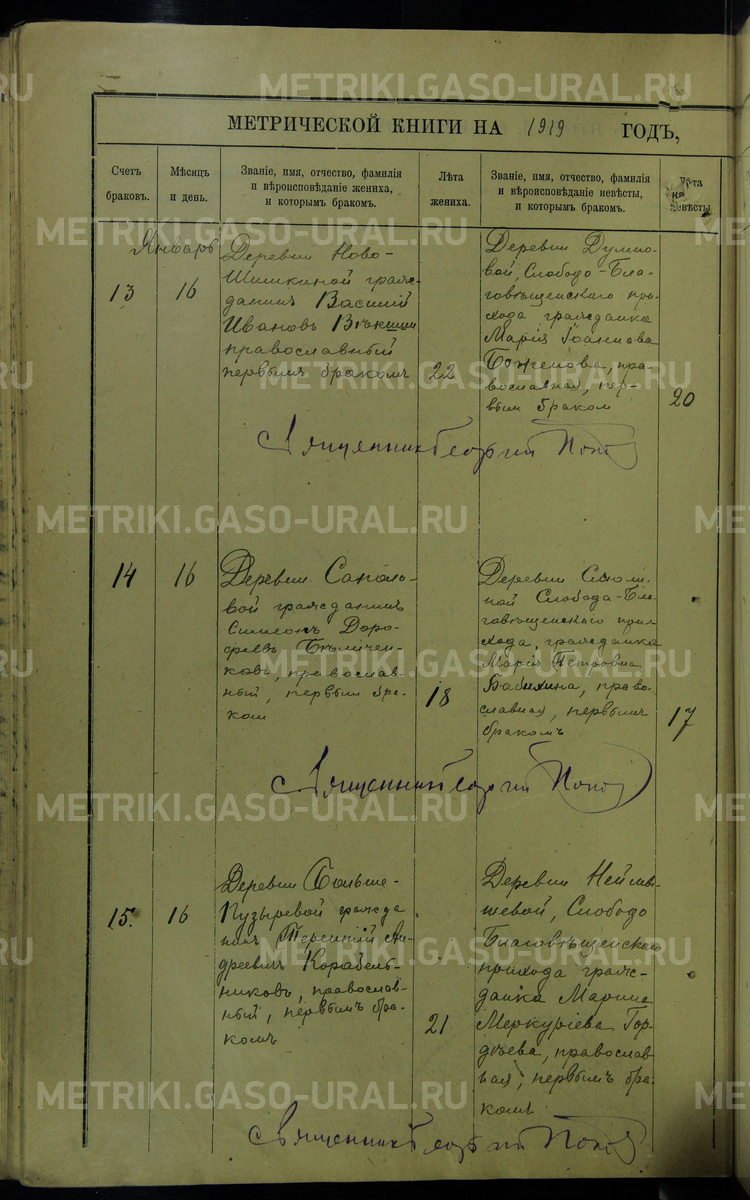 METRIKI.GASO-URAL.RU
МЕТРИЧЕСКОЙ КНИГИ НА 1919 ГОДЪ,
Счетъ браковъ.
Мѣсяцъ и день.
Званіе, имя, отчество, фамилія
и вѣроисповѣданіе жениха,
и которымъ бракомъ.
Лѣта жениха.
Званіе, имя, отчество, фамилія
и вѣроисповѣданіе невѣсты,
и которымъ бракомъ.
Лѣта невѣсты
Январь
13
16
Деревни Ново-
Шишкиной граж-
данинъ Василій
Ивановъ
православный
первымъ бракомъ
22
Деревни
вой, Слободо-Бла-
говѣщенскаго при-
хода гражданка
Марія Іоаннова
Боженова, пра-
вославная, пер-
вым браком
20
Священникъ Георгій Поп
14
16
Деревни Саполо-
вой гражданинъ
Симеонъ Доро-
феевъ Бѣличен-
ковъ, православ-
ный, первым бра-
ком
18
Деревни
ной Слободо-Бла-
говѣщенскаго при-
хода, гражданка
Марія Петровна
Бабихина, право-
славная, первымъ
бракомъ
17
Священникъ Георгій Поп
15.
16
Деревни Больше-
Пузыревой гражда
нинъ Терентій Ан-
дреевичъ Корабель-
никовъ, православ-
ный, первымъ бра-
комъ
21
Деревни
шевой, Слободо
Благовѣщенскаго
прихода граж-
данка Марина
Меркуріева Гор-
дѣева, православ-
ная, первымъ бра-
комъ.
Священникъ Георгій Поп